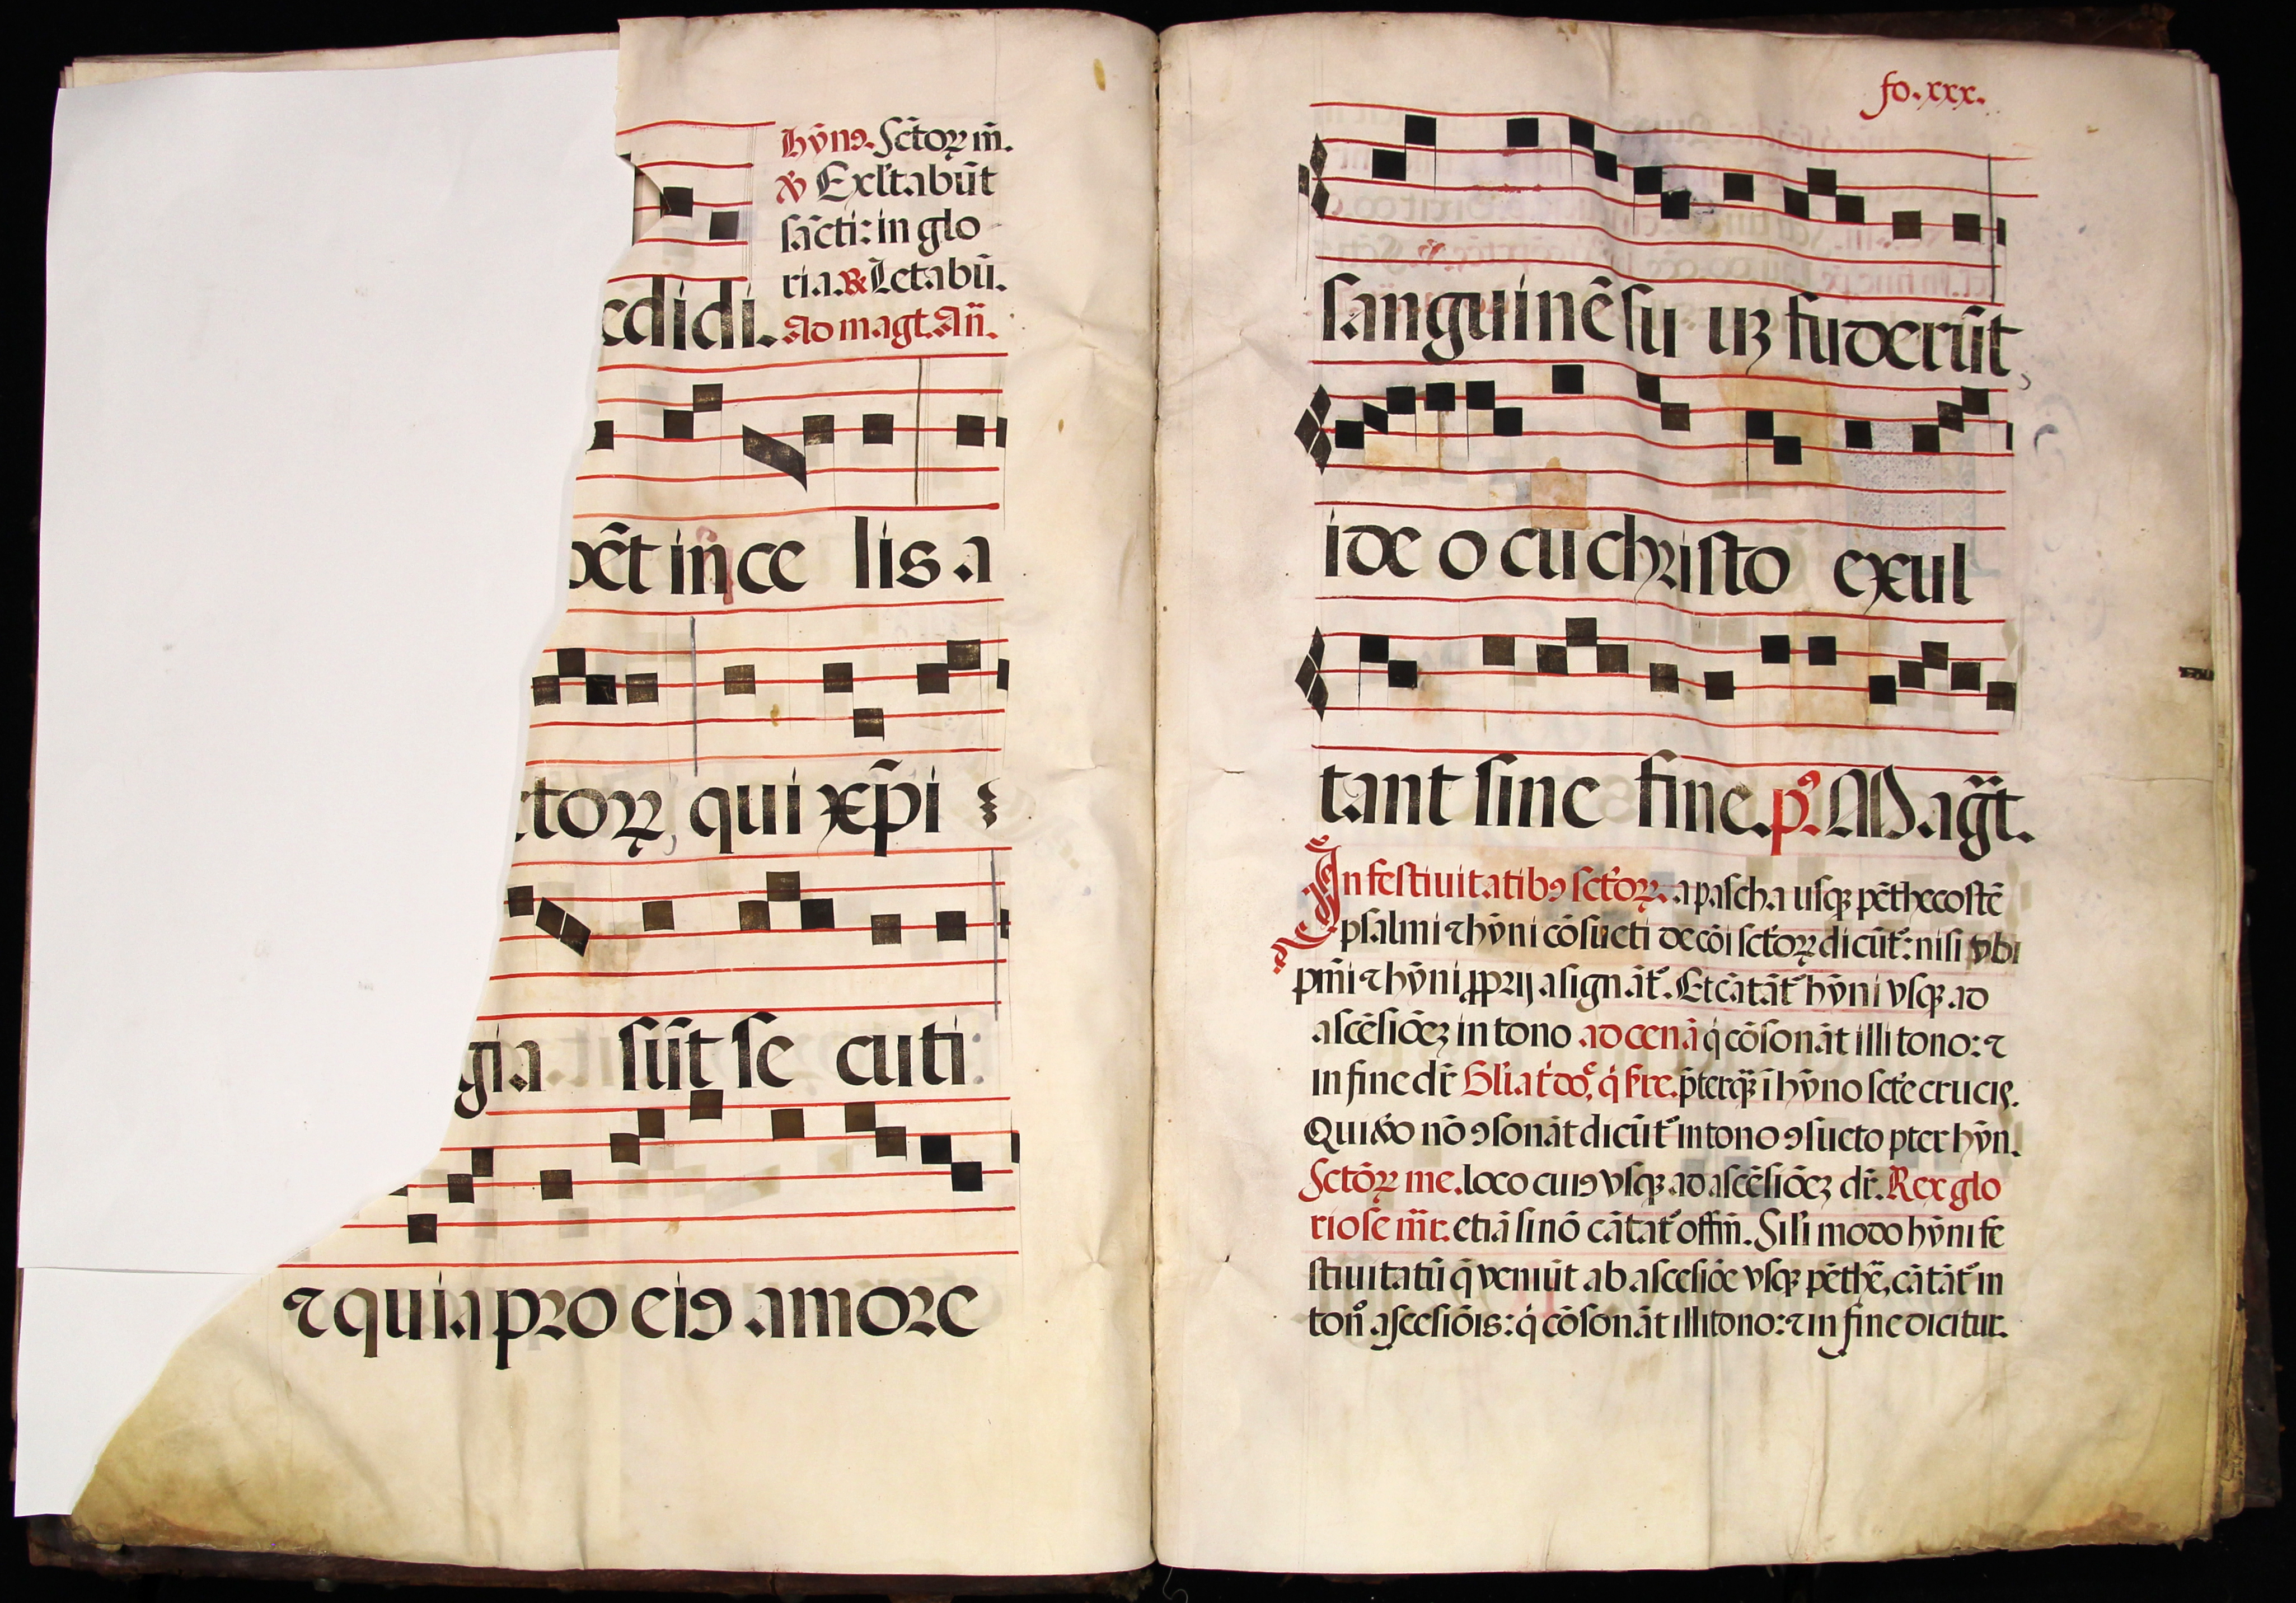 hȳnꝰ. Sctoꝝ m̄.
℣ Exl'tabūt
sācti: in glo
ria. ℟ Letabū.
edidi. Ad magt. Añ.
dēt in ce lis a
ctoꝝ, qui xp̄i
gia sūt se cuti
⁊ quia pro eiꝰ amore
fo. xxx.
sanguinē su uꝫ fuderūt,
ide o cū christo exul
tant sine fine. pꝰ. Magt̄.
In festiuitatibꝰ sctoꝝ. a pascha usqꝫ pēthecostē
psalmi ⁊ hȳni cōsueti de cōi sctoꝝ dicūt̄: nisi vbi
pm̄i ⁊ hȳni ꝓprij asignāt̄. Et cātāt̄ hȳni vsqꝫ ad
ascēsiōeꝫ in tono ad cenā q̇ cōsonāt illi tono: ⁊
in fine dr̄ Gl'ia t' do', q̇ s're. p̄terqꝫ̄ ī hȳno scte crucis.
Qui v̊o nō ꝯsonāt dicūt̄ in tono ꝯsueto pter hȳn.
Sctōꝝ me. loco cuiꝰ vsqꝫ ad ascēsiōeꝫ dr̄. Rex glo
riose m̄r. etiā si nō cātat̄ offm̄. Sil'i modo hȳni fe
stiuitatū q̄ veniūt ab ascēsiōe vsqꝫ pēthē, cātāt̄ in
ton̊ ascēsiōis: q̇ cōsonāt illi tono: ⁊ in fine dicitur.